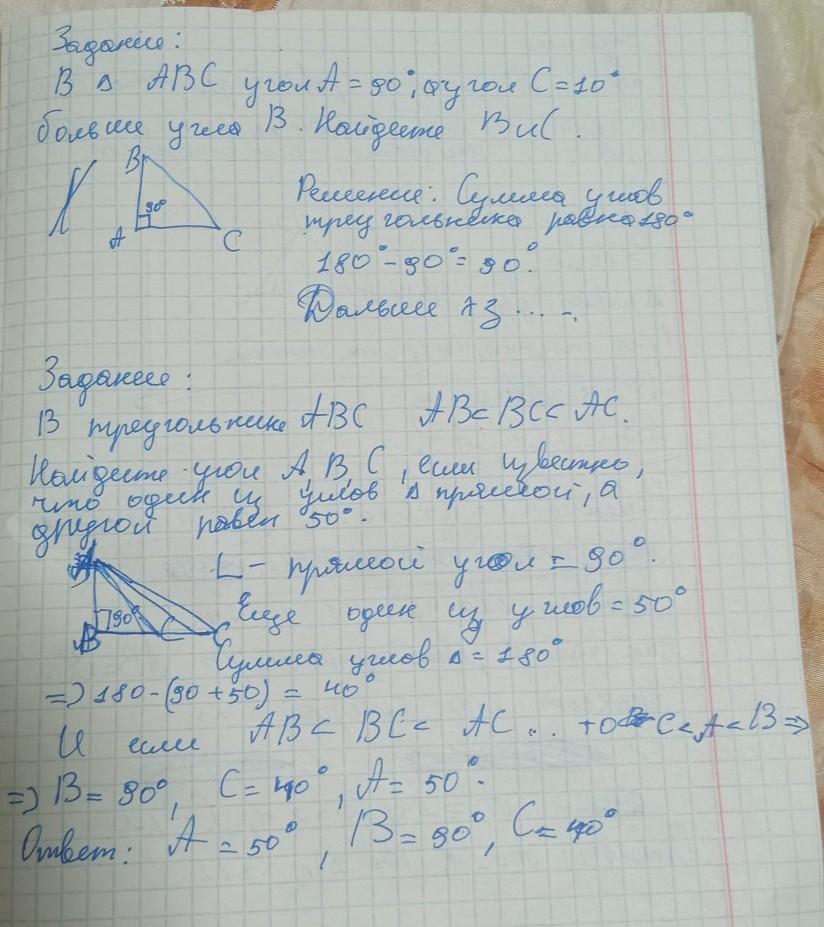 Задание:
В ∆ ABC угол A = 90°, а угол C = 10°
больше угла B. Найдите B и C.
B
90°
A
C
Решение: Сумма углов
треугольника равна 180°
180° - 90° = 90°.
Дальше
Задание:
В треугольнике ABC AB < BC < AC.
Найдите угол A, B, C, если известно,
что один из углов ∆ прямой, а
другой равен 50°.
A
90°
B
C
C
∟ - прямой угол = 90°.
Еще один из углов = 50°
Сумма углов ∆ = 180°
=> 180 - (90 + 50) = 40°
И если AB < BC < AC .. то C < A < B =>
=> B = 90°, C = 40°, A = 50°.
Ответ: A = 50°, B = 90°, C = 40°